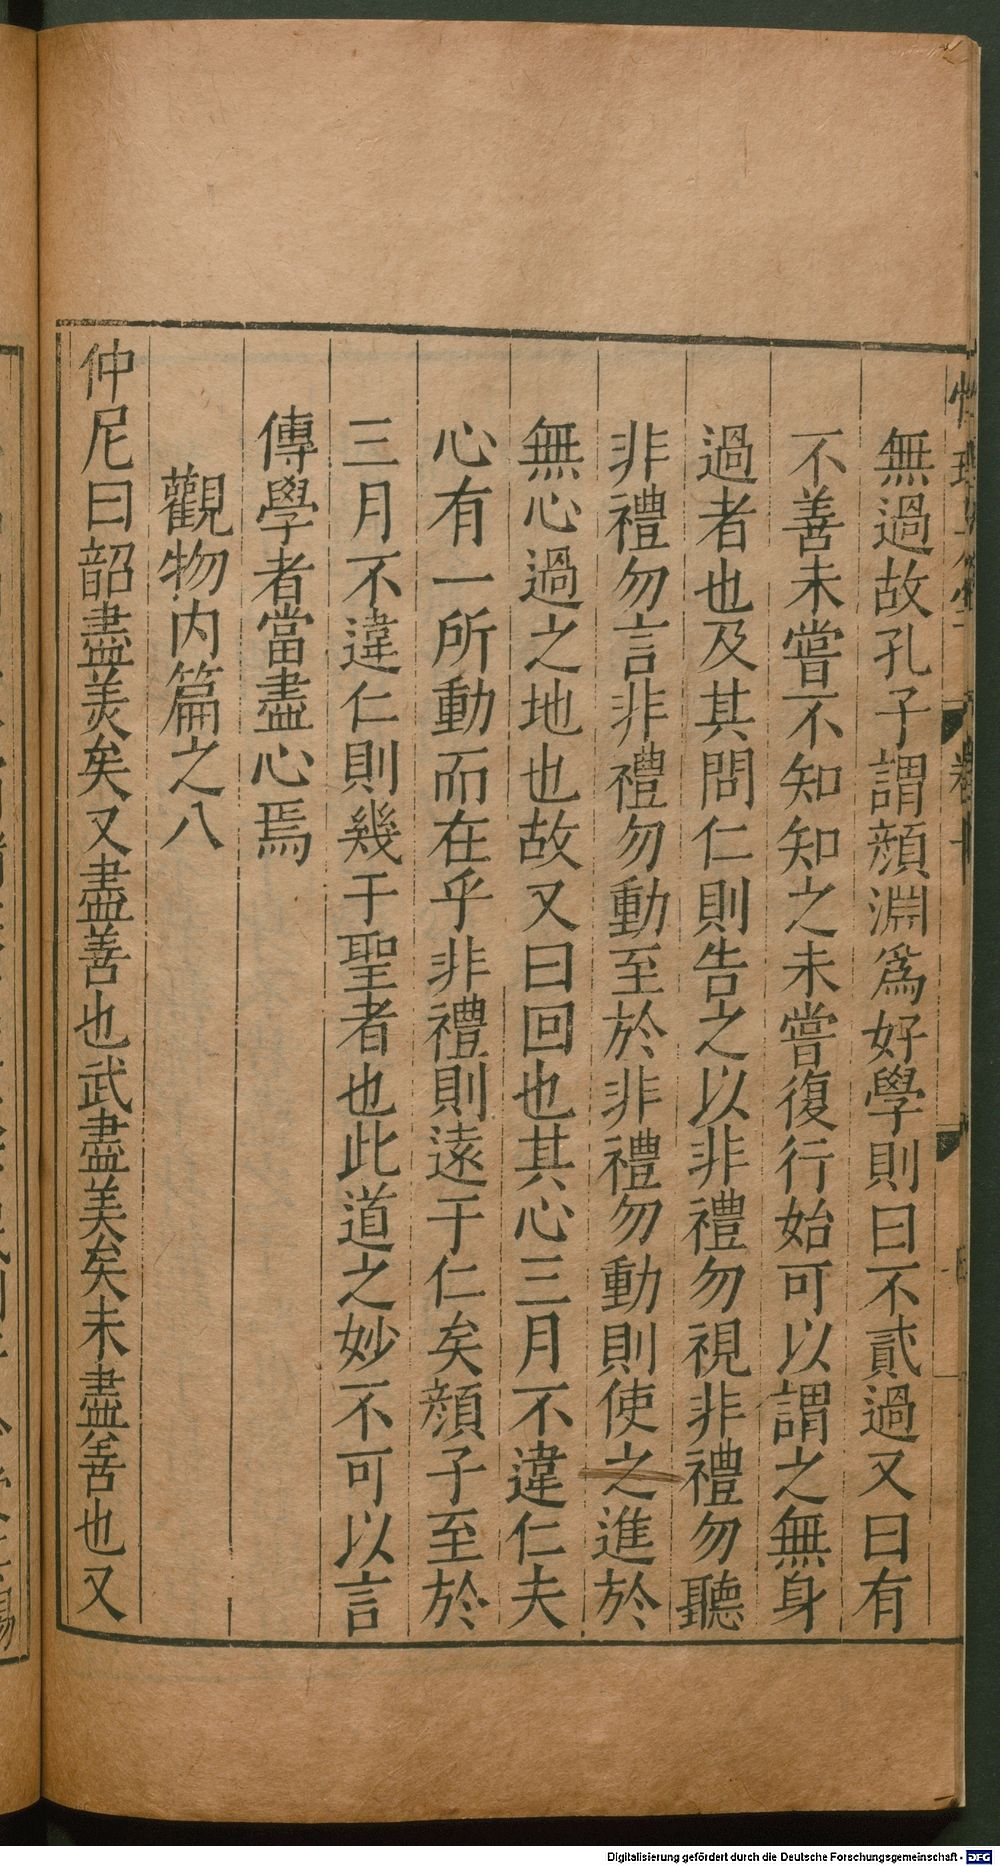 無過故孔子謂顔淵爲好學則曰不貳過又曰有
不善未嘗不知知之未嘗復行始可以謂之無身
過者也及其問仁則告之以非禮勿視非禮勿聽
非禮勿言非禮勿動至於非禮勿動則使之進於
無心過之地也故又曰回也其心三月不違仁夫
心有一所動而在乎非禮則遠于仁矣顔子至於
三月不違仁則幾于聖者也此道之妙不可以言
傳學者當盡心焉
觀物内篇之八
仲尼曰韶盡美矣又盡善也武盡美矣未盡善也又
Digitalisierung gefördert durch die Deutsche Forschungsgemeinschaft - DFG